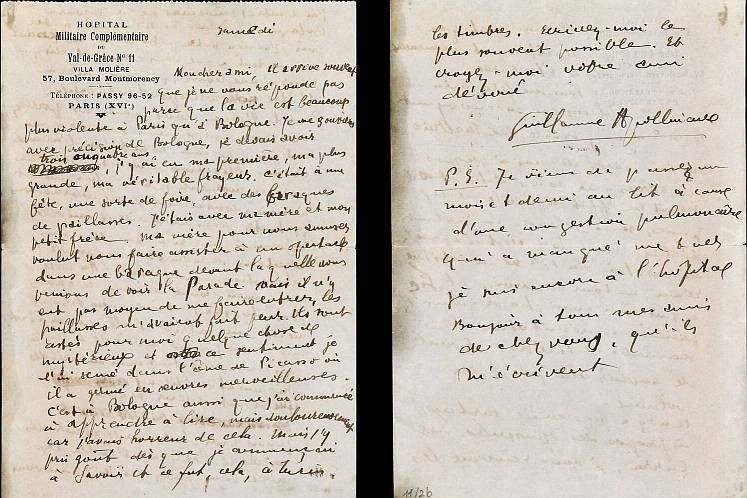 HOPITAL
Militaire Complémentaire
DU
Val-de-Grâce N° 11
VILLA MOLIÈRE
57, Boulevard Montmorency
TÉLÉPHONE : PASSY 96-52
PARIS (XVIᵉ)
samedi
Mon cher ami, il arrive souvent
que je ne vous réponde pas
parce que la vie est beaucoup
plus violente à Paris qu'à Bologne. Je me souviens
avec précision de Bologne, je devais avoir
trois ou quatre ans,
j'y ai eu ma première, ma plus
grande, ma véritable frayeur. C'était à une
fête, une sorte de foire, avec des baraques
de paillasses. J'étais avec ma mère et mon
petit frère, ma mère pour nous amuser
voulut nous faire assister à un spectacle
dans une baraque devant laquelle nous
venions de voir la Parade mais il n'y
eut pas moyen de me faire entrer, les
paillasses m'avaient fait peur. Ils sont
restés pour moi quelque chose de
mystérieux et ce sentiment je
l'ai semé dans l'âme de Picasso où
il a germé en œuvres merveilleuses.
C'est à Bologne aussi que j'ai commencé
à apprendre à lire, mais douloureusement
car j'avais horreur de cela. Mais j'y
pris goût dès que je commençai
à savoir et ce fut, cela, à
les timbres. Ecrivez-moi le
plus souvent possible. Et
croyez-moi votre ami
dévoué
Guillaume Apollinaire
P.S. Je viens de passer un
mois et demi au lit à cause
d'une congestion pulmonaire
qui a manqué me tuer
je suis encore à l'hôpital
Bonjour à tous mes amis
de chez vous, qu'ils
m'écrivent
11/26